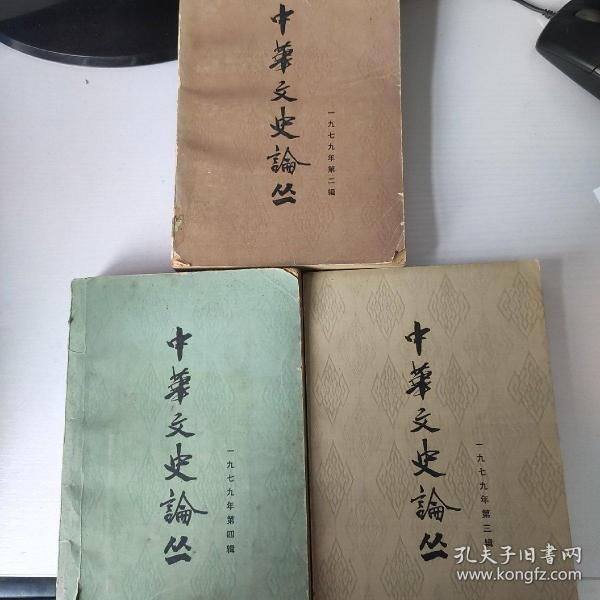 中華文史論丛
一九七九年第二辑
中華文史論丛
一九七九年第四辑
中華文史論丛
一九七九年第三辑
孔夫子旧书网
www.kongfz.com